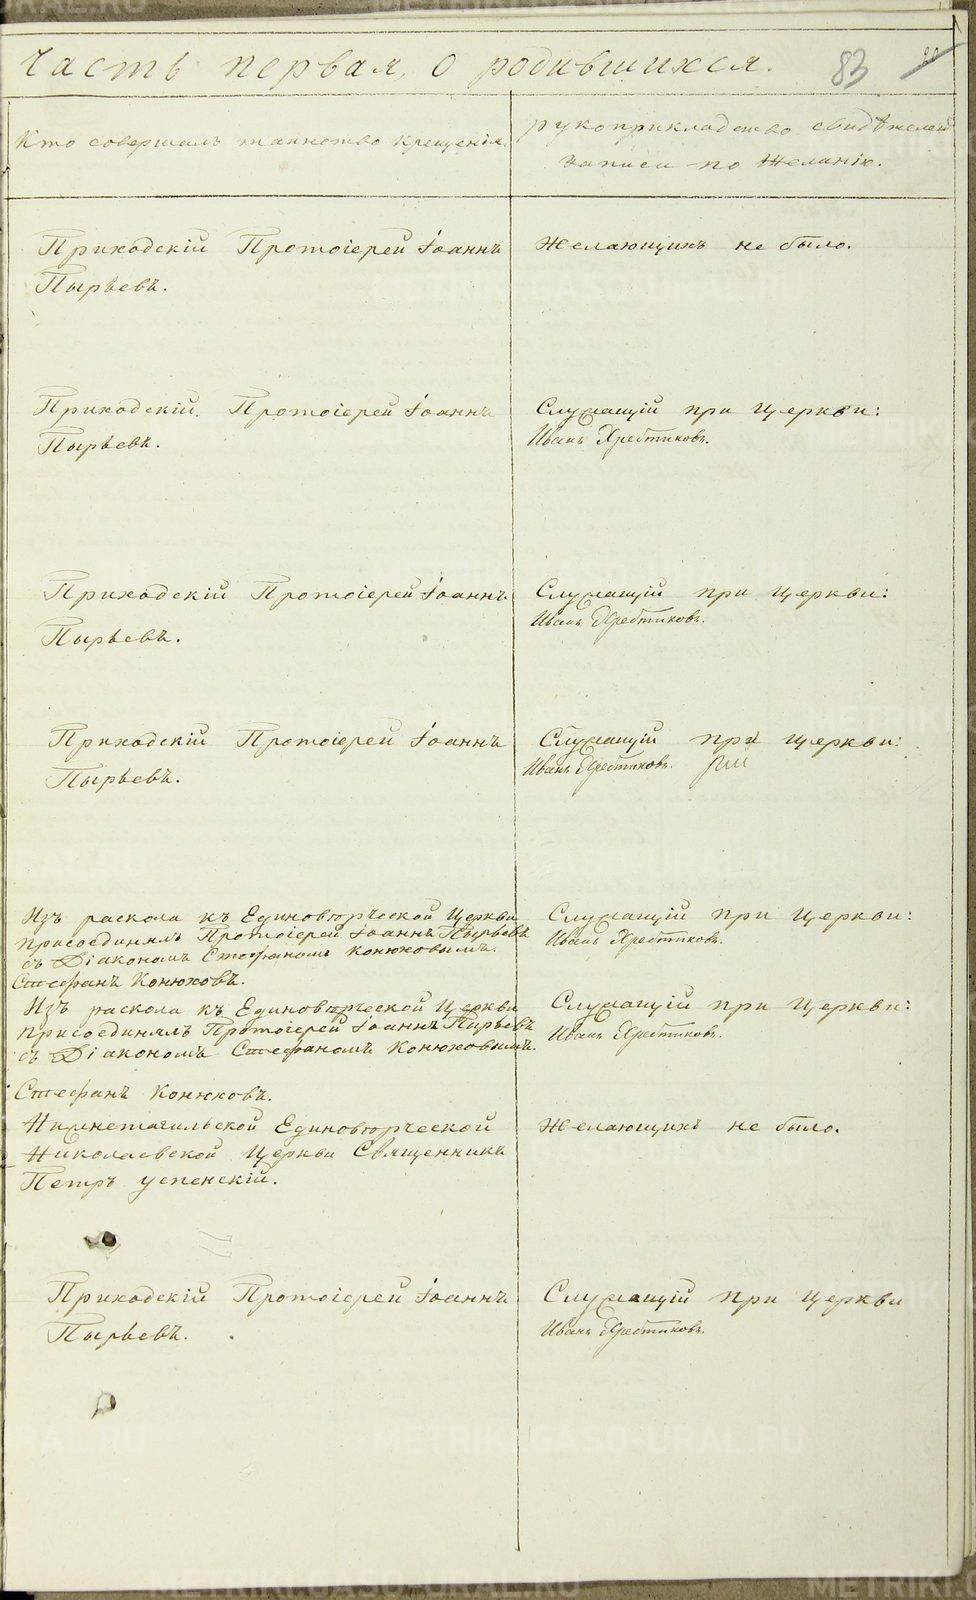 Часть первая, о родившихся.
83
Кто совершалъ таинство крещенія.
рукоприкладство свидѣтелей
записи по желанію.
Приходскій Протоіерей Іоаннъ
Пырьевъ.
Желающихъ не было.
Приходскій Протоіерей Іоаннъ
Пырьевъ.
Служащій при церкви:
Иванъ Хребтиковъ.
Приходскій Протоіерей Іоаннъ
Пырьевъ.
Служащій при церкви:
Иванъ Хребтиковъ.
Приходскій Протоіерей Іоаннъ
Пырьевъ.
Служащій при церкви:
Иванъ Хребтиковъ.
Изъ раскола къ Единовѣрческой Церкви
присоединялъ Протоіерей Іоаннъ Пырьевъ
съ Діакономъ Стефаномъ Конюховымъ.
Стефанъ Конюховъ.
Служащій при Церкви:
Иванъ Хребтиковъ.
Изъ раскола къ Единовѣрческой Церкви
присоединялъ Протоіерей Іоаннъ Пырьевъ
съ Діакономъ Стефаномъ Конюховымъ.
Стефанъ Конюховъ.
Служащій при Церкви:
Иванъ Хребтиковъ.
Нижнетагильской Единовѣрческой
Николаевской Церкви Священникъ
Петръ Успенскій.
Желающихъ не было.
Приходскій Протоіерей Іоаннъ
Пырьевъ.
Служащій при церкви
Иванъ Хребтиковъ.
METRIKI.GASO-URAL.RU